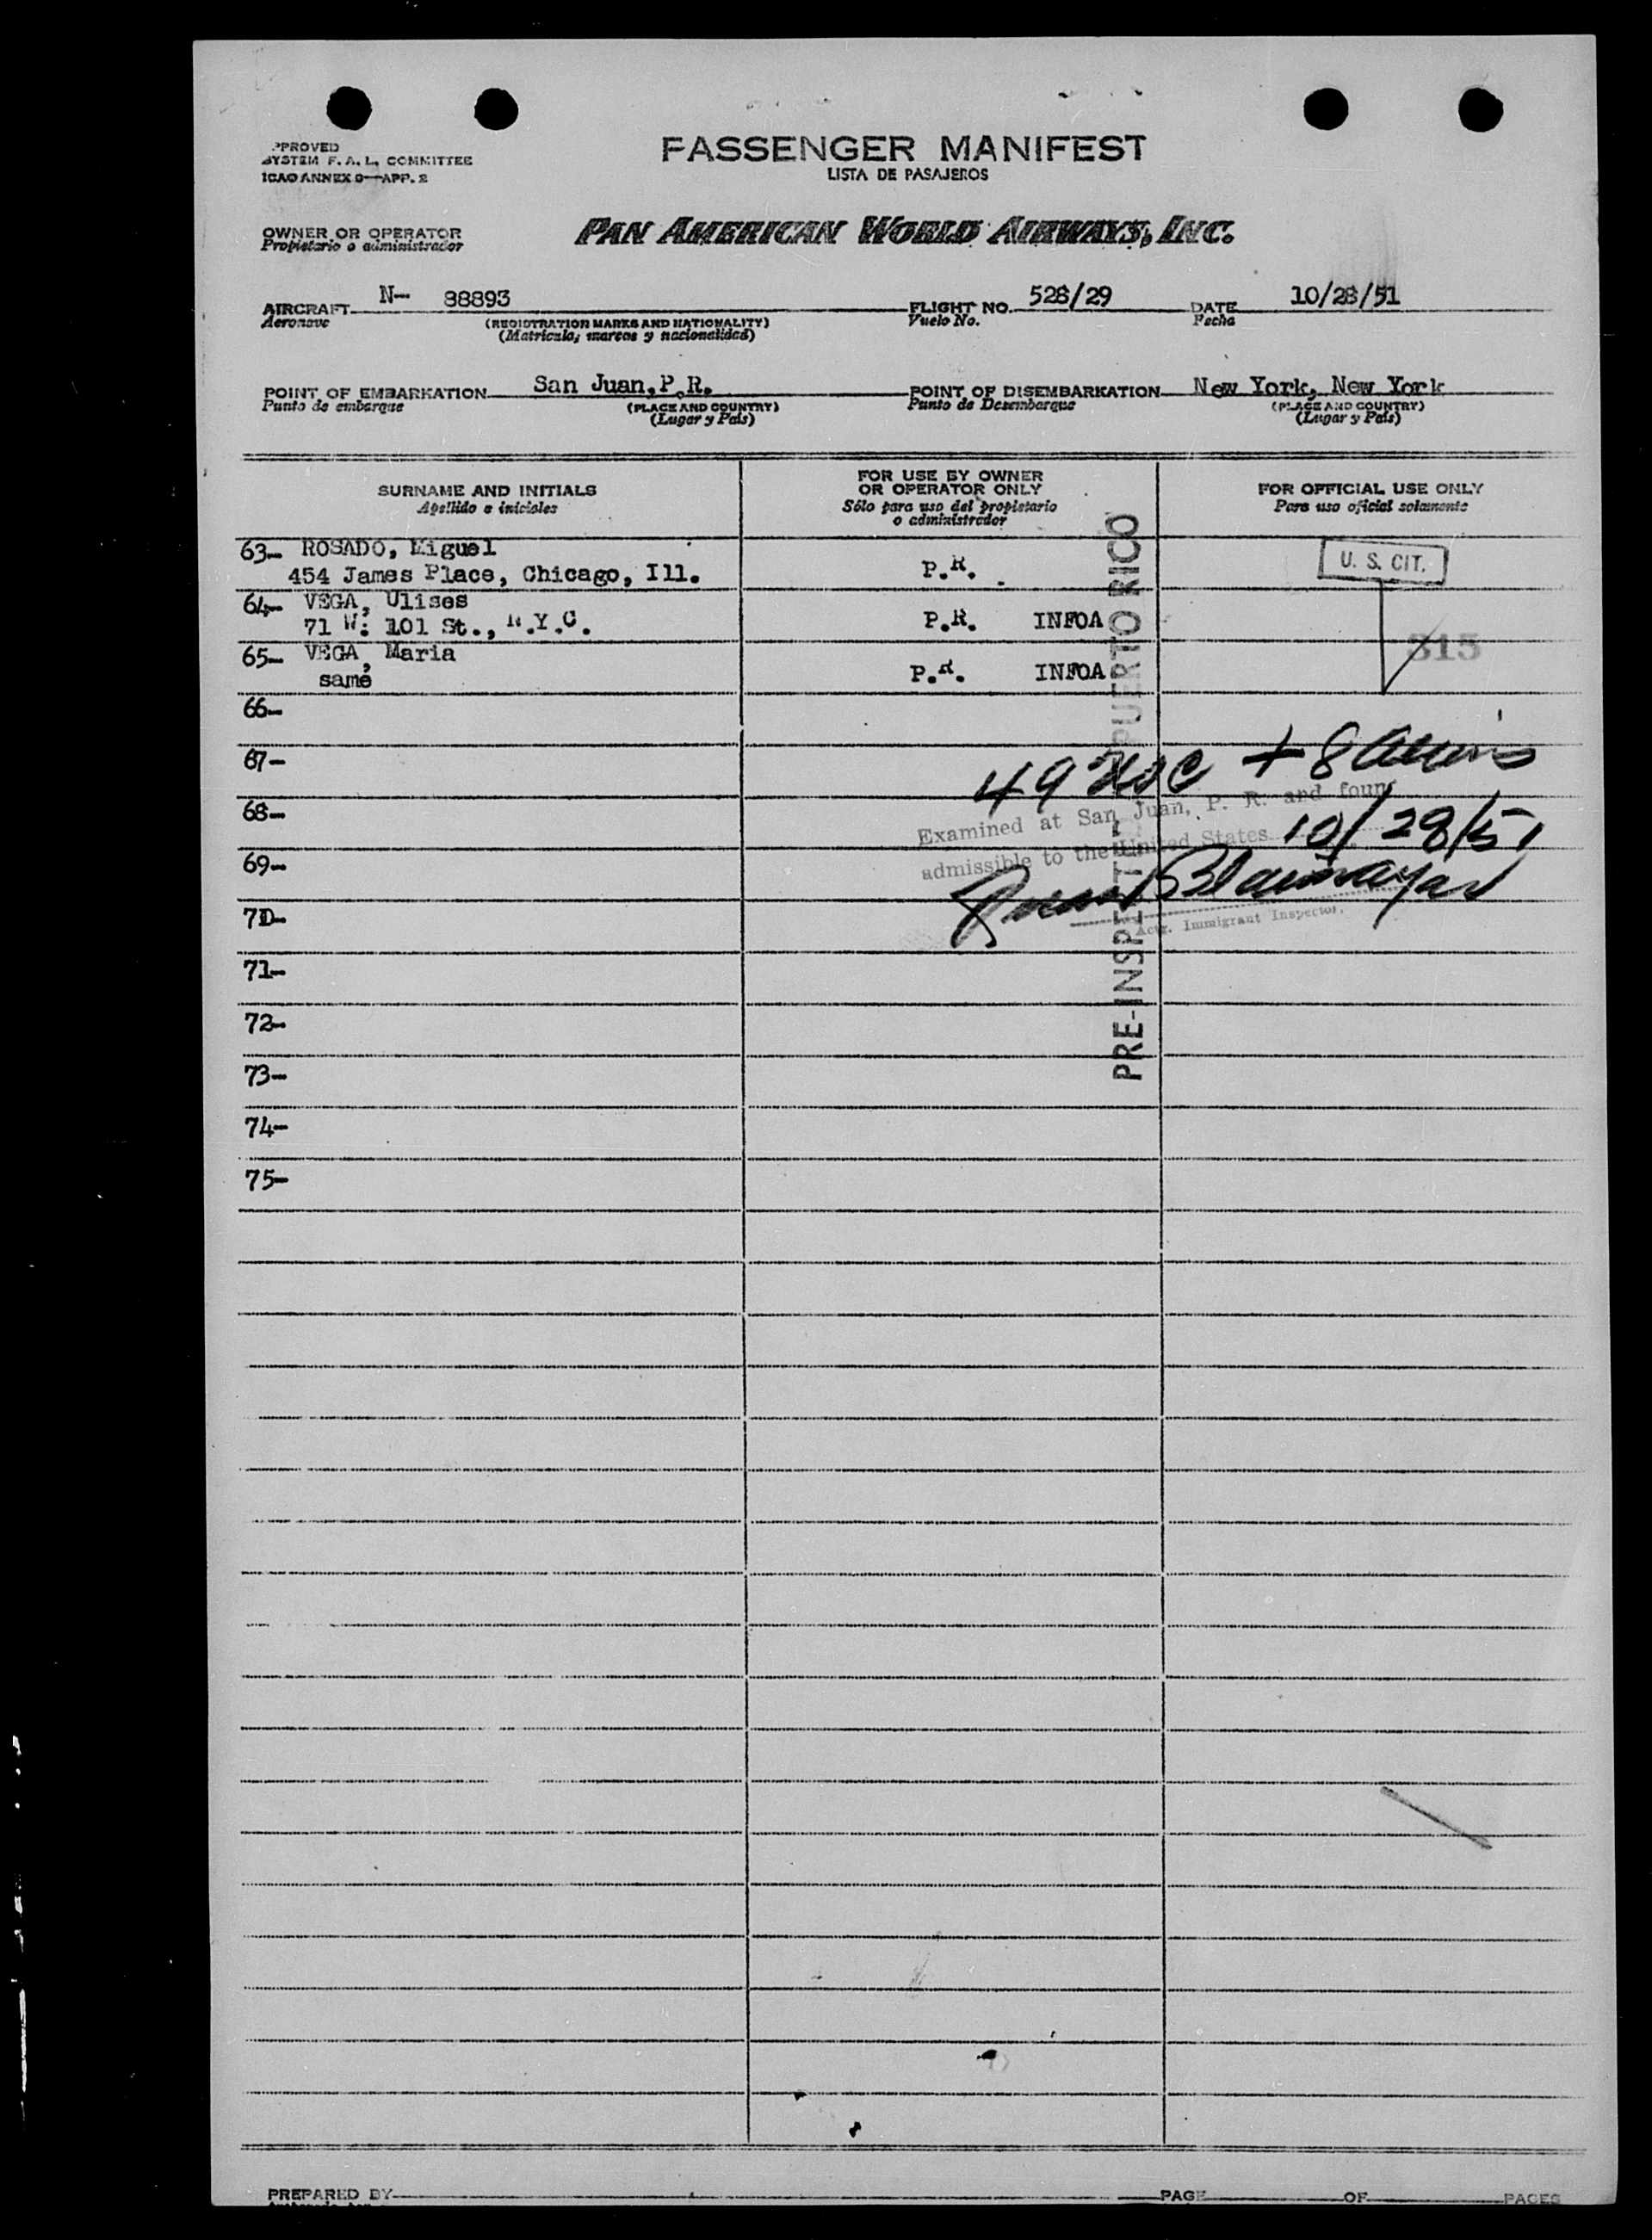 PPROVED
SYSTEM F. A. L. COMMITTEE
ICAO ANNEX 9—APP. 2
PASSENGER MANIFEST
LISTA DE PASAJEROS
OWNER OR OPERATOR
Propietario o administrador
PAN AMERICAN WORLD AIRWAYS, INC.
AIRCRAFT N- 88893
Aeronave
(REGISTRATION MARKS AND NATIONALITY)
(Matricula, marcas y nacionalidad)
FLIGHT NO. 528/29
Vuelo No.
DATE 10/28/51
Fecha
POINT OF EMBARKATION San Juan, P.R.
Punto de embarque
(PLACE AND COUNTRY)
(Lugar y País)
POINT OF DISEMBARKATION New York, New York
Punto de Desembarque
(PLACE AND COUNTRY)
(Lugar y País)
SURNAME AND INITIALS
Apellido e iniciales
FOR USE BY OWNER
OR OPERATOR ONLY
Sólo para uso del propietario
o administrador
FOR OFFICIAL USE ONLY
Para uso oficial solamente
63- ROSADO, Miguel
454 James Place, Chicago, Ill. P.R.
U. S. CIT.
64- VEGA, Ulises
71 W. 101 St., N.Y.C. P.R. INFOA
65- VEGA, Maria
same P.R. INFOA
315
66-
67-
49 + 8
68-
Examined at San Juan, P. R. and foun
admissible to the United States 10/28/51
69-
70-
Actg. Immigrant Inspector.
71-
72-
73-
74-
75-
PUERTO RICO
PREPARED BY
PAGE OF PAGES